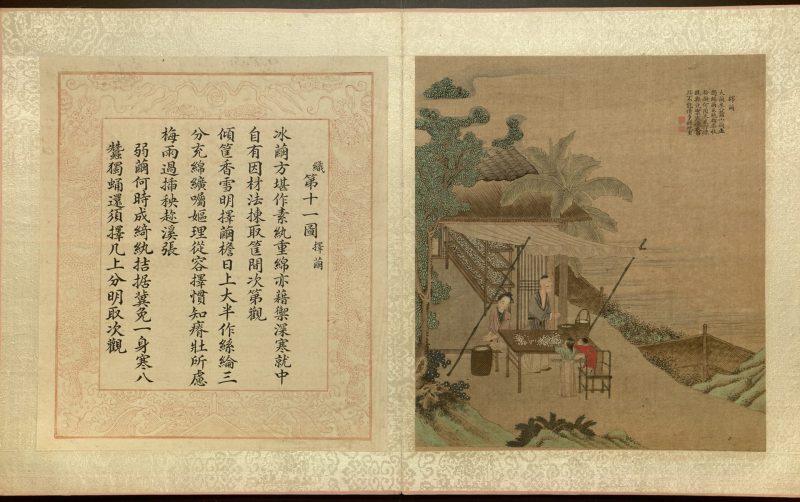 織第十一圖 擇繭
冰繭方堪作素紈重綿亦藉禦深寒就中
自有因材法揀取筐間次第觀
傾筐香雪明擇繭檐日上大半作絲綸三
分充綿纊嘱嫗理從容擇慣知瘠壯所慮
梅雨過插秧趁溪張
弱繭何時成綺紈拮据冀免一身寒八
蠶獨蛹還須擇几上分明取次觀
擇繭